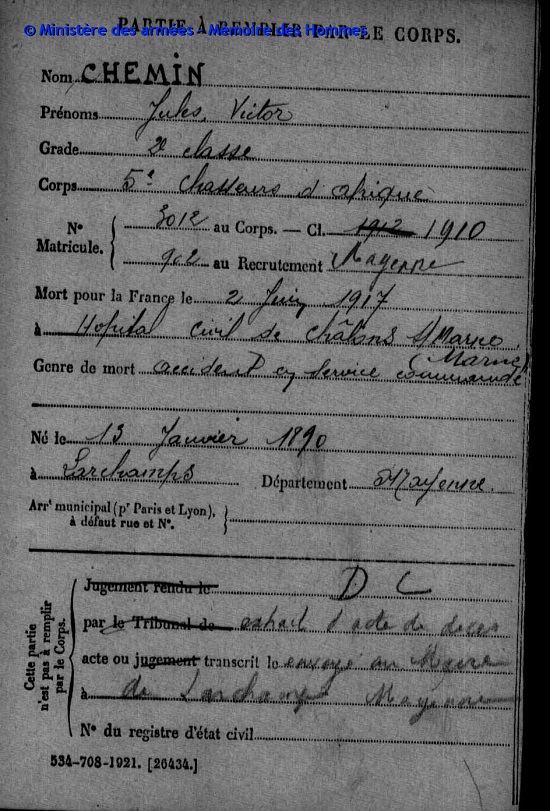 PARTIE À REMPLIR PAR LE CORPS.
© Ministère des armées - Mémoire des Hommes
Nom CHEMIN
Prénoms Jules, Victor
Grade 2e classe
Corps 5e Chasseurs d'afrique
N° Matricule. { 3012 au Corps. — Cl. 1912 1910
902 au Recrutement Mayenne
Mort pour la France le 2 Juin 1917
à Hopital civil de Châlons s/Marne
(Marne)
Genre de mort accident en service commandé
Né le 13 Janvier 1890
à Larchamps Département Mayenne.
Arrt municipal (pr Paris et Lyon),
à défaut rue et N°. }
Cette partie n'est pas à remplir par le Corps.
Jugement rendu le D C
par le Tribunal de extrait d'acte de décès
acte ou jugement transcrit le envoyé au Maire
à de Larchamps Mayenne
N° du registre d'état civil
534-708-1921. [26434.]